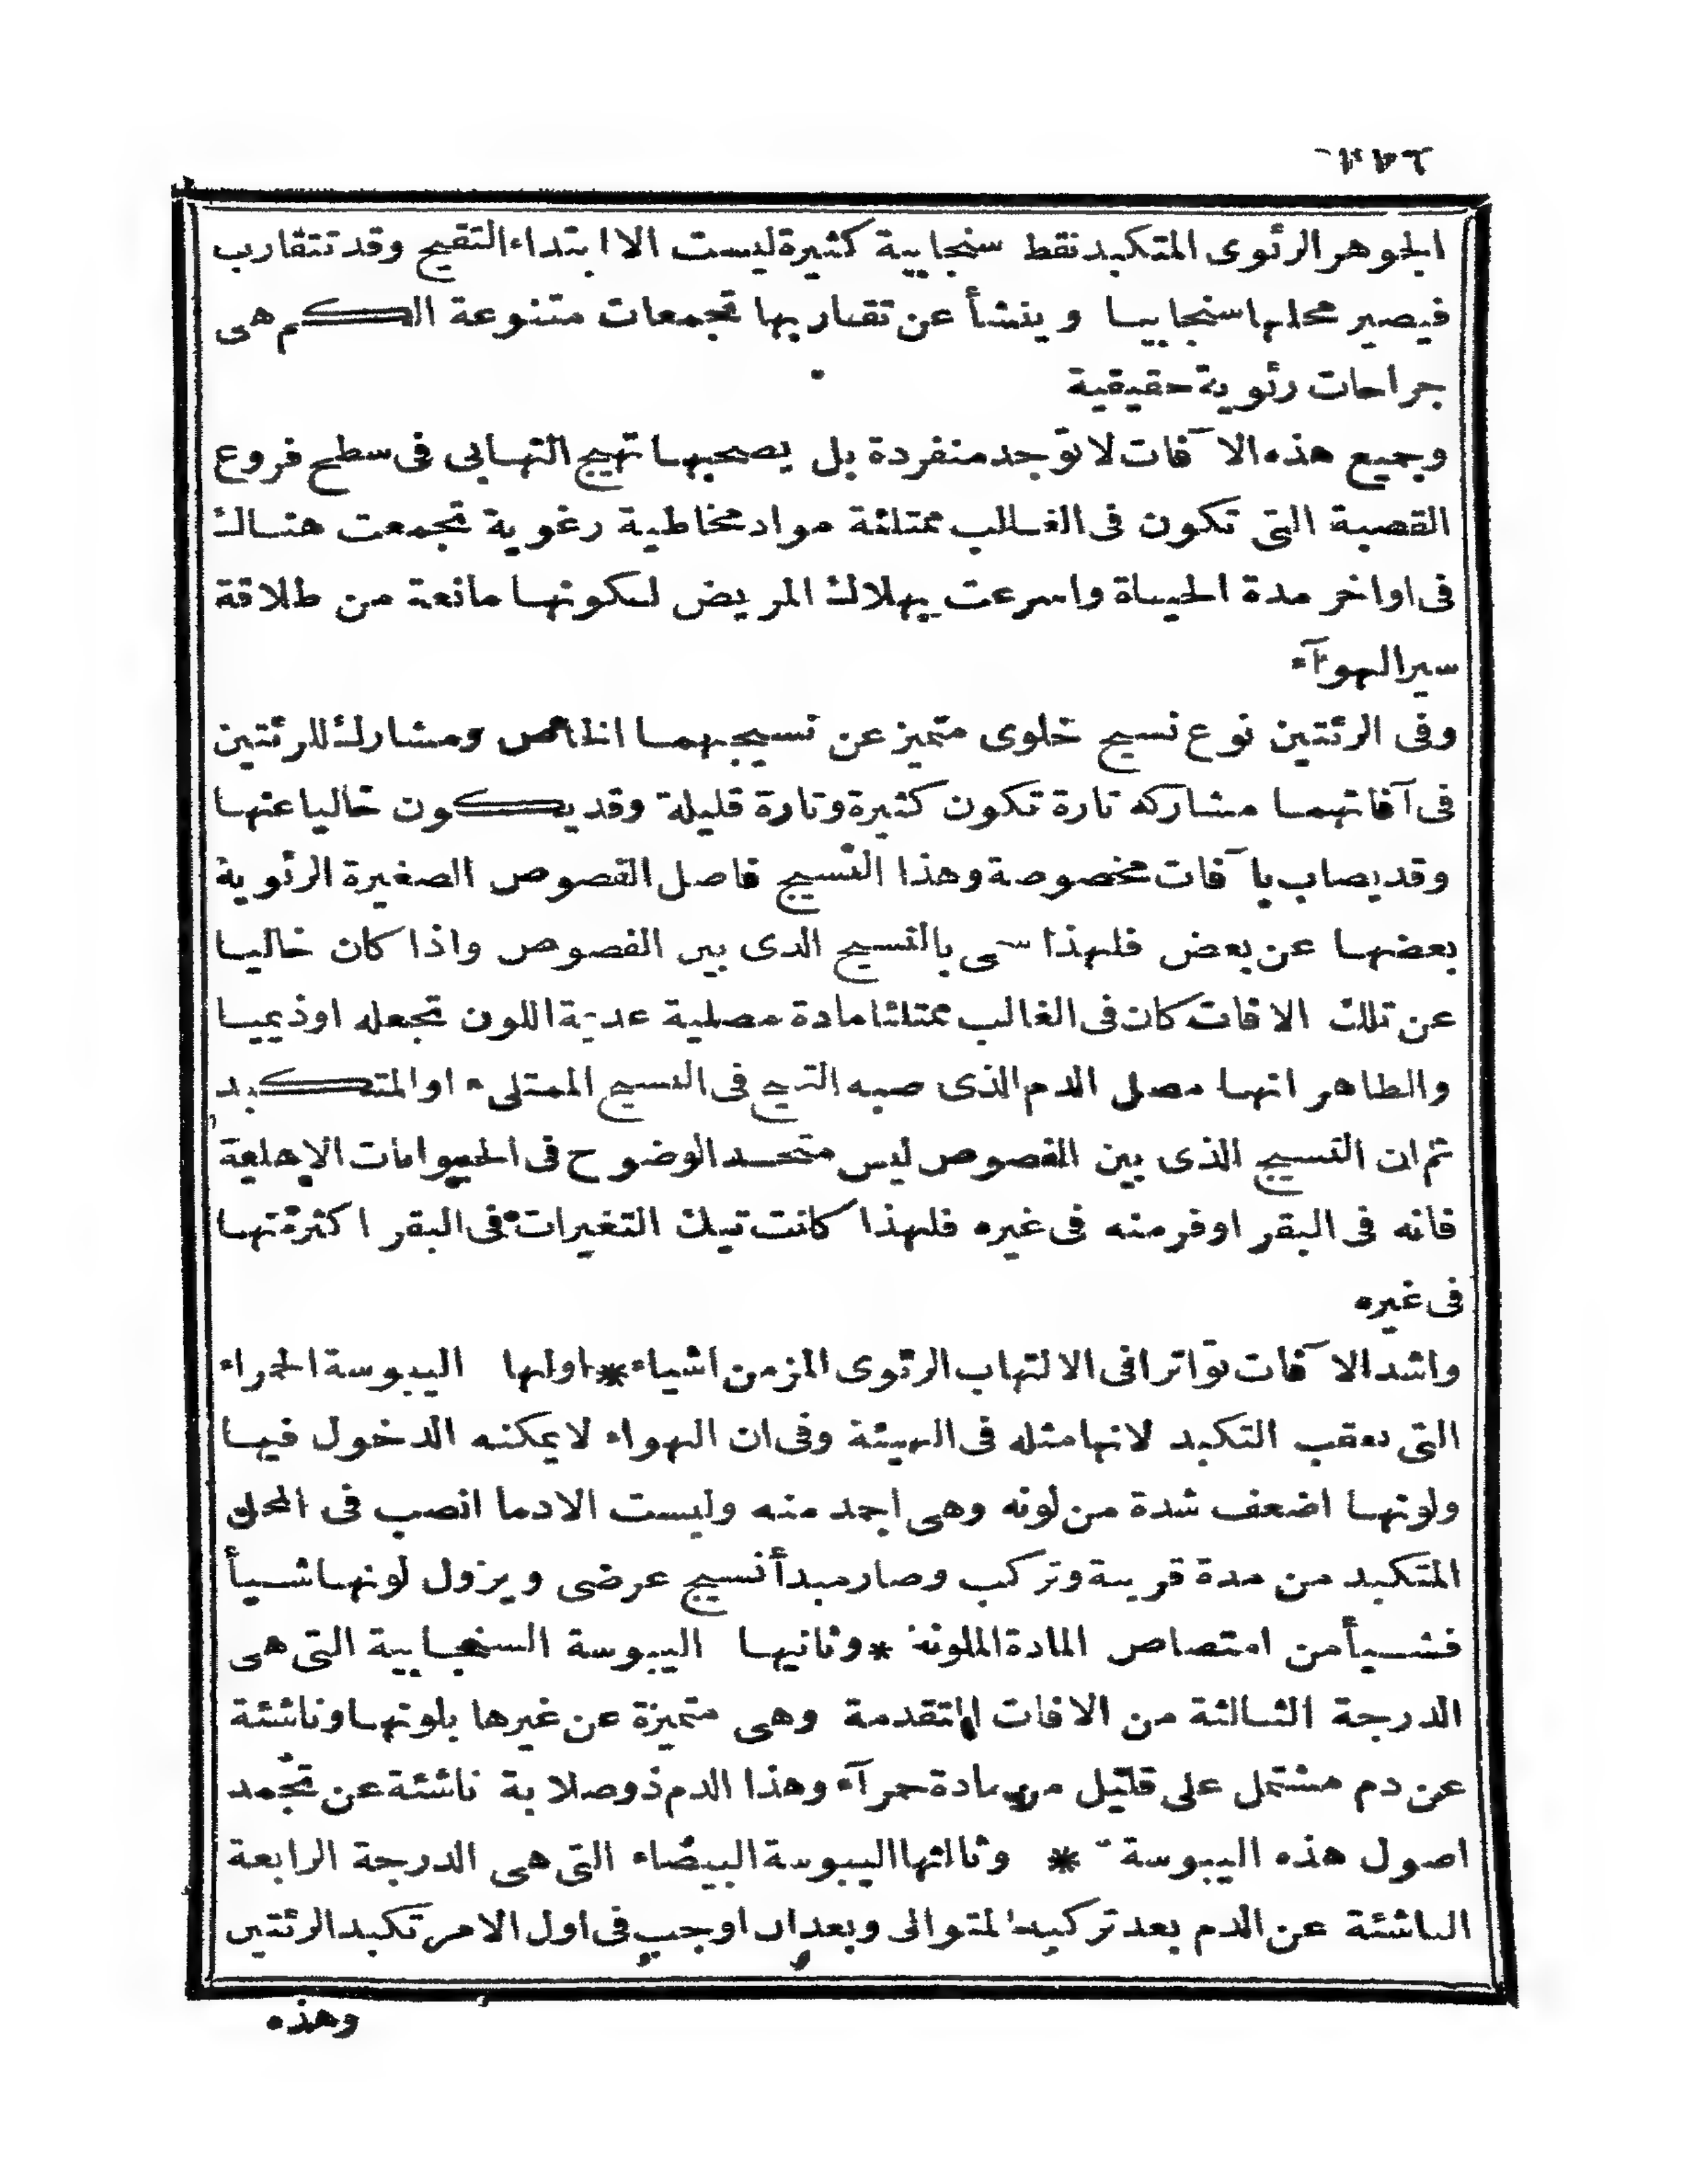 الجوهر الرئوى المتكبد نقط سنجابية كثيرة ليست الا ابتداء التقيح وقد تتقارب
فيصير محلها سنجابيا وينشأ عن تقاربها تجمعات متنوعة الكم هى
جراحات رئوية حقيقية
وجميع هذه الآفات لا توجد منفردة بل يصحبها تهيج التهابى فى سطح فروع
القصبة التى تكون فى الغالب ممتلئة مواد مخاطية رغوية تجمعت هنالك
فى اواخر مدة الحياة واسرعت بهلاك المريض لكونها مانعة من طلاقة
سير الهوآء
وفى الرئتين نوع نسيج خلوى متميز عن نسيجهما الخاص ومشارك للرئتين
فى آفاتهما مشاركه تارة تكون كثيرة وتارة قليلة وقد يكون خاليا عنها
وقد يصاب بآفات مخصوصة وهذا النسيج فاصل الفصوص الصغيرة الرئوية
بعضها عن بعض فلهذا سمى بالنسيج الدى بين الفصوص واذا كان خاليا
عن تلك الافات كان فى الغالب ممتلئا مادة مصلية عديمة اللون تجعله اوذيميا
والظاهر انها مصل الدم الذى صبه التهيج فى النسيج الممتلىء او المتكبد
ثم ان النسيج الذى بين الفصوص ليس متحد الوضوح فى الحيوانات الاهلية
فانه فى البقر اوفر منه فى غيره فلهذا كانت تيك التغيرات فى البقر اكثر منها
فى غيره
واشد الآفات تواترا فى الالتهاب الرئوى المزمن اشياء * اولها اليبوسة الحمراء
التى تعقب التكبد لانها مثله فى الهيئة وفى ان الهواء لا يمكنه الدخول فيها
ولونها اضعف شدة من لونه وهى اجمد منه وليست الا دما انصب فى المحل
المتكبد من مدة قريبة وتركب وصار مبدأ نسيج عرضى ويزول لونها شيأ
فشيأ من امتصاص المادة الملونة * وثانيها اليبوسة السنجابية التى هى
الدرجة الثالثة من الافات المتقدمة وهى متميزة عن غيرها بلونها وناشئة
عن دم مشتمل على قليل من مادة حمرآء وهذا الدم ذو صلابة ناشئة عن تجمد
اصول هذه اليبوسة * وثالثها اليبوسة البيضاء التى هى الدرجة الرابعة
الناشئة عن الدم بعد تركيبه المتوالى وبعد ان اوجب فى اول الامر تكبد الرئتين
وهذه